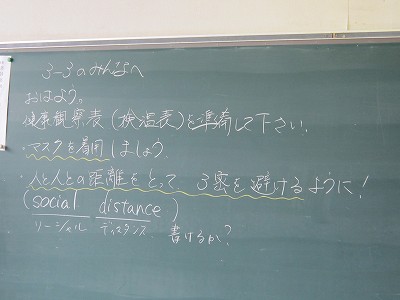 3-3のみんなへ
おはよう。
健康観察表(検温表)を準備して下さい。
・マスクを着用しましょう。
・人と人との距離をとって 3密を避けるように!
(social distance)
ソーシャル ディスタンス 書けるか?